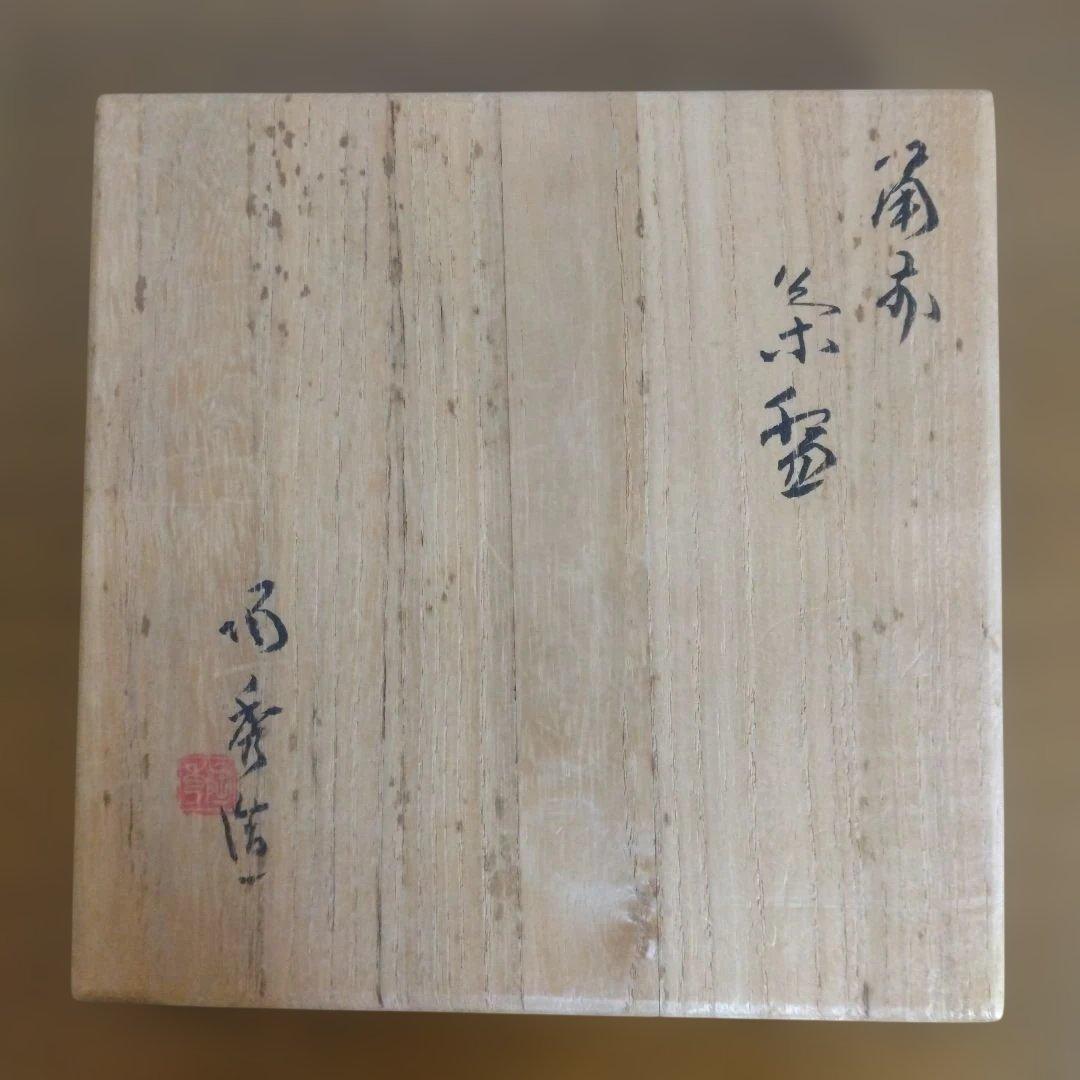 備前
茶盌
陶秀造